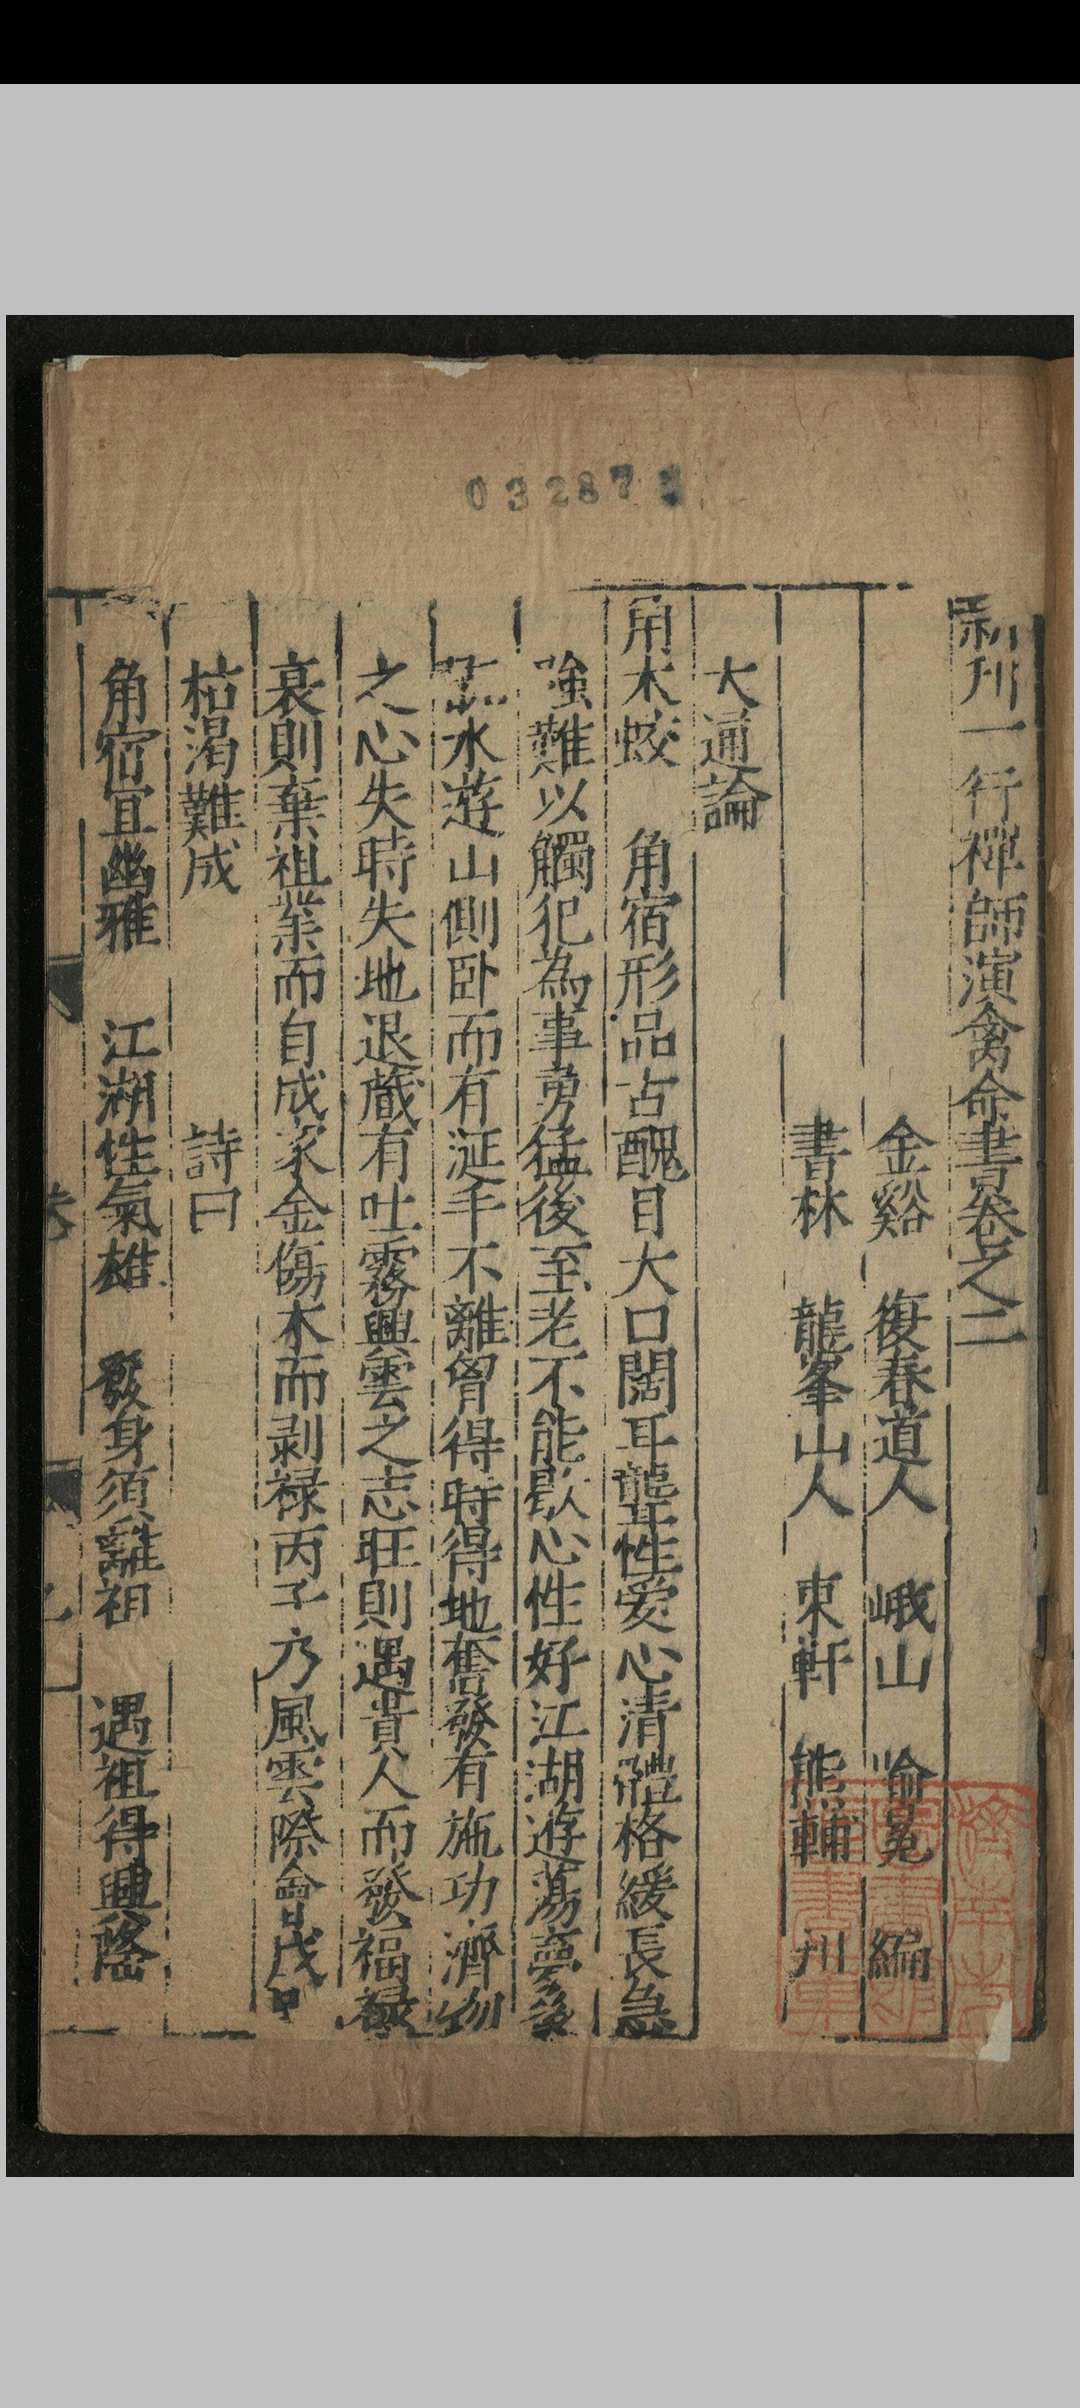 032873
新刊一行禪師演禽命書卷之二
金谿 復春道人 峨山 喻冕 編
書林 龍峯山人 東軒 熊輔 刋
大通論
角木蛟 角宿形品古醜目大口闊耳聾性愛心清體格緩長急
強難以觸犯為事勇猛後至老不能歇心性好江湖遊蕩夢多
水遊山側卧而有涎手不離胷得時得地奮發有施功濟物
之心失時失地退藏有吐霧興雲之志旺則遇貴人而發福祿
衰則棄祖業而自成家金傷木而剥禄丙子乃風雲際會戊申
枯渴難成 詩曰
角宿宜幽雅 江湖性氣雄 發身須離祖 遇祖得興隆